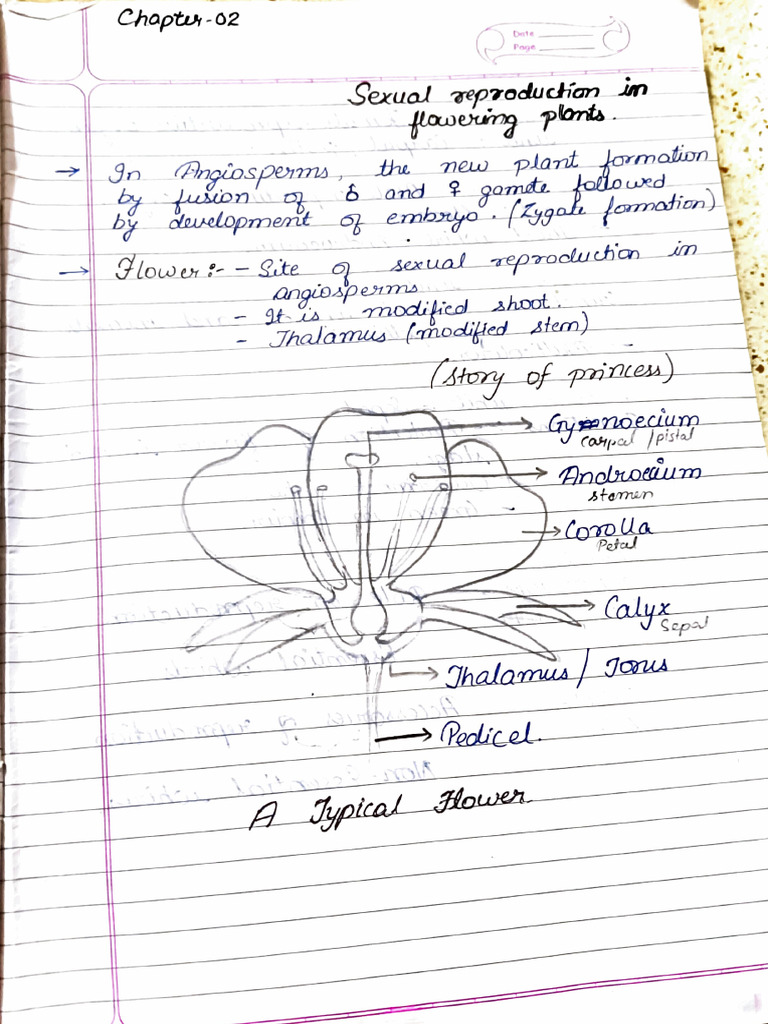 Chapter-02
Date
Page
Sexual reproduction in
flowering plants.
→ In Angiosperms, the new plant formation
by fusion of ♂ and ♀ gamete followed
by development of embryo. (Zygate formation)
→ Flower:- - Site of sexual reproduction in
angiosperms
- It is modified shoot.
- Thalamus (modified stem)
(story of princess)
Gynoecium
carpal /pistal
Androecium
stamen
Corolla
Petal
Calyx
Sepal
Thalamus / Torus
Pedicel.
A Typical Flower.